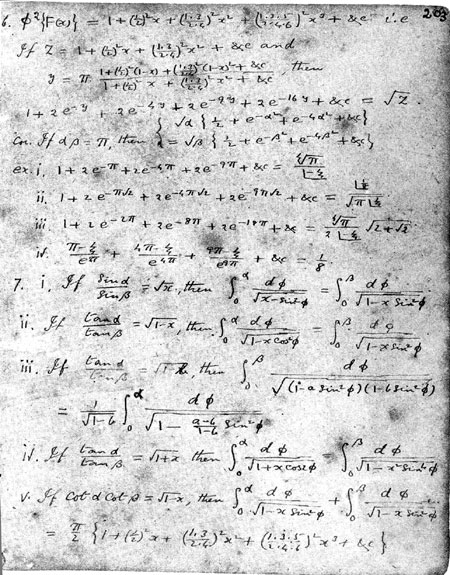 203
6. φ²{F(x)} = 1+(½)²x + (1·3/2·4)²x² + (1·3·5/2·4·6)²x³ + &c i.e
If Z = 1+(½)²x + (1·3/2·4)²x² + &c and
y = π (1+(½)²(1-x)+(1·3/2·4)²(1-x)²+&c)/(1+(½)²x+(1·3/2·4)²x²+&c), then
1+2e^{-y}+2e^{-4y}+2e^{-9y}+2e^{-16y}+&c = √Z.
{ √α {½+e^{-α²}+e^{-4α²}+&c}
Cor. If αβ = π, then = √β {½+e^{-β²}+e^{-4β²}+&c}
ex. i. 1+2e^{-π}+2e^{-4π}+2e^{-9π}+&c =
ii. 1+2e^{-π√2}+2e^{-4π√2}+2e^{-9π√2}+&c =
iii. 1+2e^{-2π}+2e^{-8π}+2e^{-18π}+&c = √2+√2
iv. (π-¼)/e^{π} + (4π-¼)/e^{4π} + (9π-¼)/e^{9π} + &c = 1/8.
7. i. If sin α/sin β = √x, then ∫₀^α dφ/√(x-sin²φ) = ∫₀^β dφ/√(1-x sin²φ)
ii. If tan α/tan β = √(1-x), then ∫₀^α dφ/√(1-x cos²φ) = ∫₀^β dφ/√(1-x sin²φ)
iii. If tan α/tan β = √(1-b), then ∫₀^β dφ/√((1-a sin²φ)(1-b sin²φ))
= 1/√(1-b) ∫₀^α dφ/√(1-(a-b)/(1-b) sin²φ)
iv. If tan α/tan β = √(1+x) then ∫₀^α dφ/√(1+x cos2φ) = ∫₀^β dφ/√(1-x² sin²φ)
v. If cot α cot β = √(1-x), then ∫₀^α dφ/√(1-x sin²φ) + ∫₀^β dφ/√(1-x sin²φ)
= π/2 {1+(½)²x+(1·3/2·4)²x²+(1·3·5/2·4·6)²x³+&c}